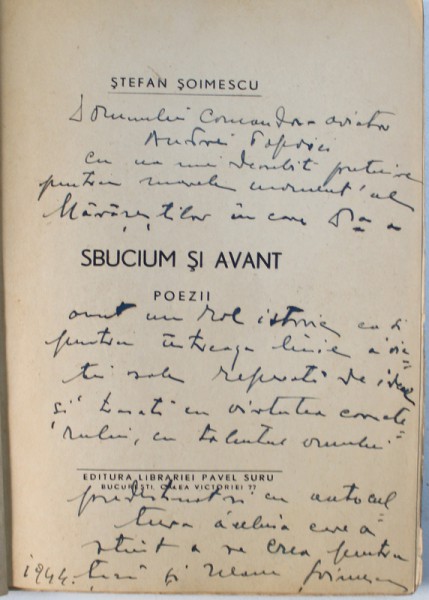 ȘTEFAN ȘOIMESCU
Domnului Comandor aviator
Andrei Popovici
cu cea mai deosebit prețuire
pentru marele moment al
Mărășeștilor în care D-sa a
SBUCIUM ȘI AVANT
POEZII
avut un rol istoric ca și
pentru întreaga linie a vie=
ții sale reperată de ideal
și dusată cu virtutea caracte=
rului, cu talentul omului
EDITURA LIBRARIEI PAVEL SURU
BUCUREȘTI, CALEA VICTORIEI 77
predestinat și cu autocul
tura aceluia care a
știut a se crea pentru
1944. țară și neam Șoimescu